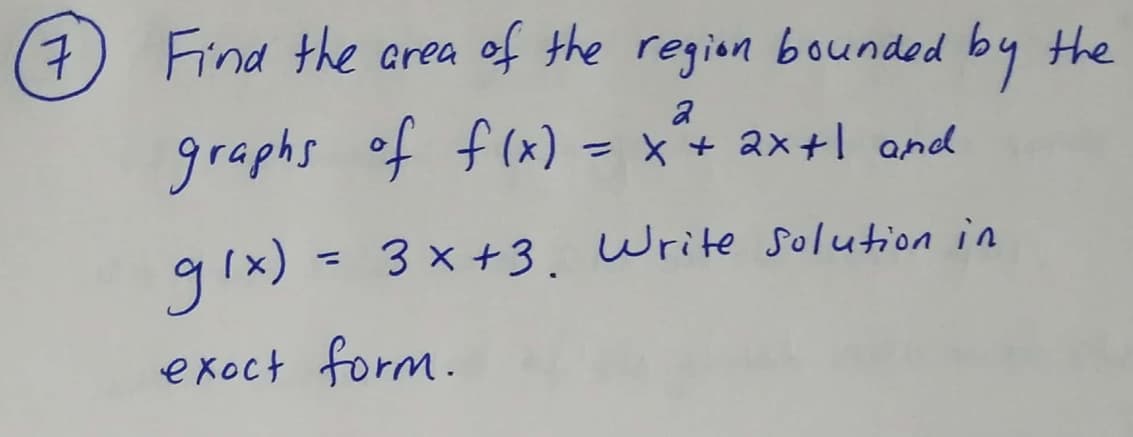 7 Find the area of the region bounded by the
graphs of f(x) = x² + 2x+1 and
g(x) = 3x+3. Write solution in
exact form.